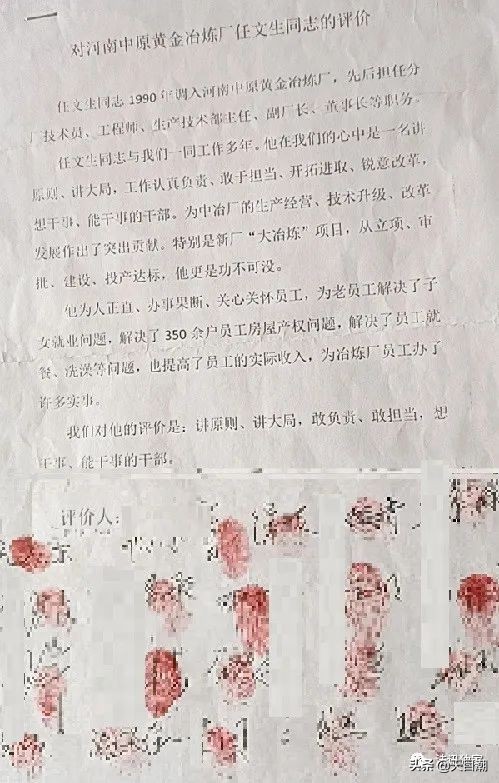 对河南中原黄金冶炼厂任文生同志的评价
任文生同志1990年调入河南中原黄金冶炼厂，先后担任分
厂技术员、工程师、生产技术部主任、副厂长、董事长等职务。
任文生同志与我们一同工作多年。他在我们的心中是一名讲
原则、讲大局，工作认真负责、敢于担当、开拓进取、锐意改革，
想干事、能干事的干部。为中冶厂的生产经营、技术升级、改革
发展作出了突出贡献。特别是新厂“大冶炼”项目，从立项、审
批、建设、投产达标，他更是功不可没。
他为人正直、办事果断、关心关怀员工，为老员工解决了子
女就业问题，解决了350余户员工房屋产权问题，解决了员工就
餐、洗澡等问题，也提高了员工的实际收入，为冶炼厂员工办了
许多实事。
我们对他的评价是：讲原则、讲大局，敢负责、敢担当，想
干事、能干事的干部。
评价人：
头条